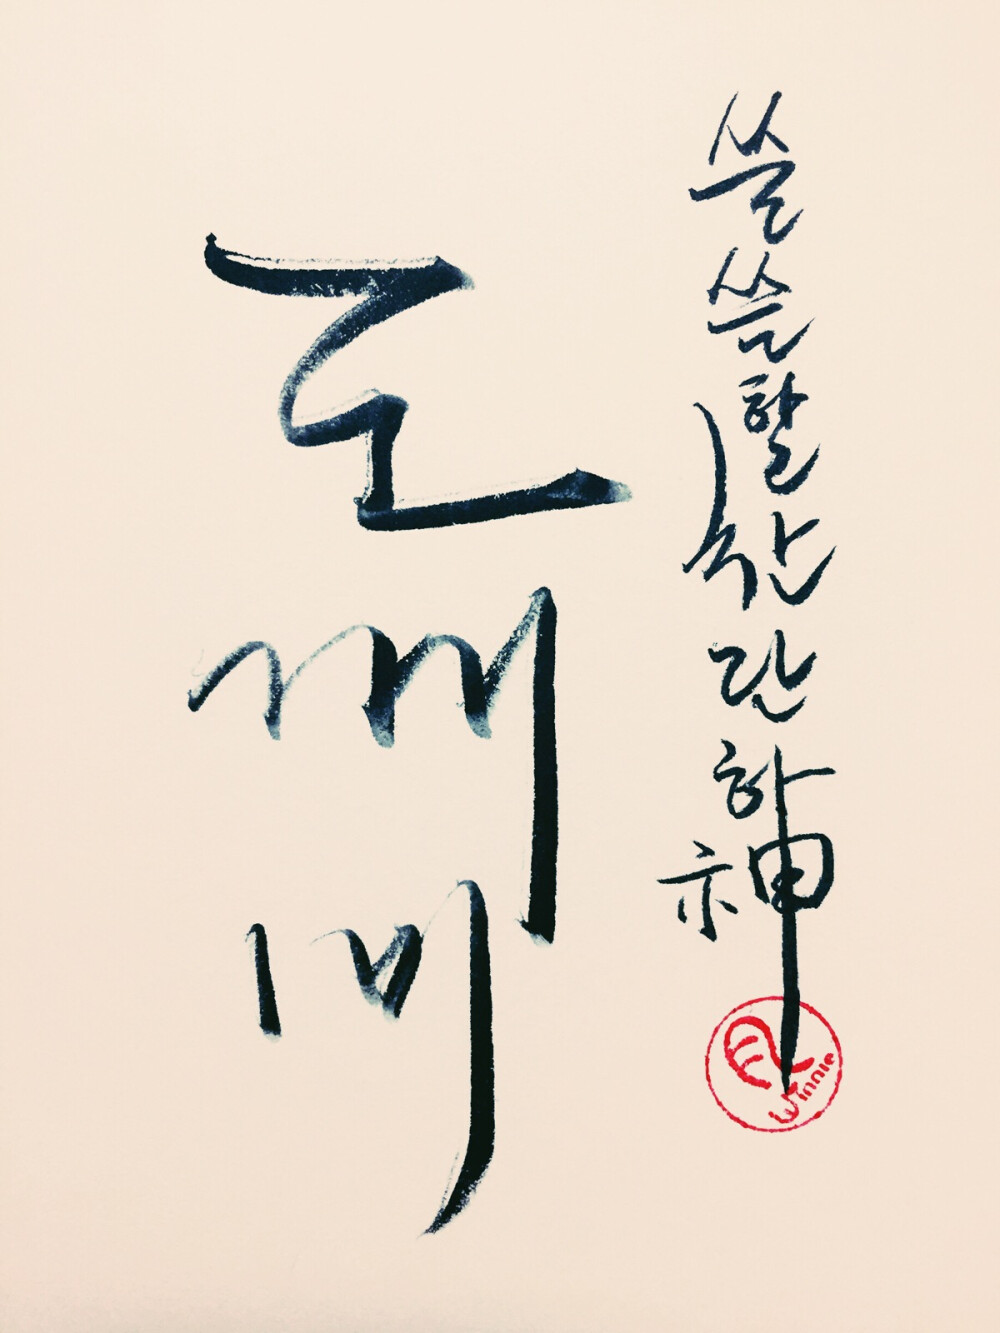 쓸쓸하고찬란하神
도깨비
Winnie